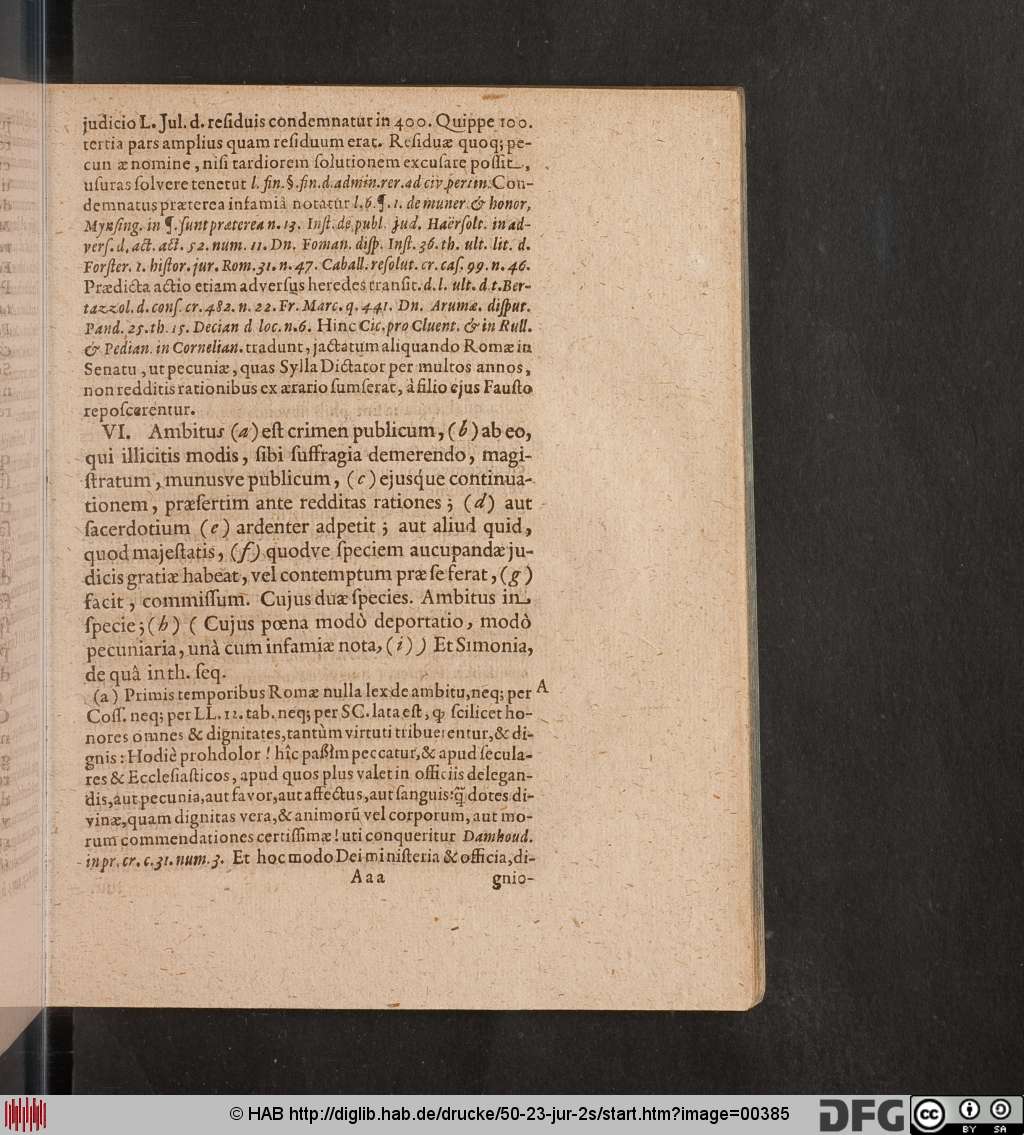 judicio L. Jul. d. reſiduis condemnatur in 400. Quippe 100.
tertia pars amplius quam reſiduum erat. Reſiduæ quoq; pe-
cun æ nomine, niſi tardiorem ſolutionem excuſare poſſit,
uſuras ſolvere tenetur l. fin. §. fin. d. admin. rer. ad civ. pertin. Con-
demnatus præterea infamiâ notatur l. 6. ¶. 1. de muner. & honor,
Mynſing. in ¶. ſunt præterea n. 13. Inſt. de publ. jud. Haërſolt. in ad-
verſ. d. act. act. 52. num. 11. Dn. Foman. diſp. Inſt. 36. th. ult. lit. d.
Forſter. 1. hiſtor. jur. Rom. 31. n. 47. Caball. reſolut. cr. caſ. 99. n. 46.
Prædicta actio etiam adverſus heredes tranſit. d. l. ult. d. t. Ber-
tazzol. d. conſ. cr. 482. n. 22. Fr. Marc. q. 441. Dn. Arumæ. diſput.
Pand. 25. th. 15. Decian d loc. n. 6. Hinc Cic. pro Cluent. & in Rull.
& Pedian. in Cornelian. tradunt, jactatum aliquando Romæ in
Senatu, ut pecuniæ, quas Sylla Dictator per multos annos,
non redditis rationibus ex ærario ſumſerat, à filio ejus Fauſto
repoſcerentur.
VI. Ambitus (a) eſt crimen publicum, (b) ab eo,
qui illicitis modis, ſibi ſuffragia demerendo, magi-
ſtratum, munusve publicum, (c) ejusque continua-
tionem, præſertim ante redditas rationes; (d) aut
ſacerdotium (e) ardenter adpetit; aut aliud quid,
quod majeſtatis, (f) quodve ſpeciem aucupandæ ju-
dicis gratiæ habeat, vel contemptum præ ſe ferat, (g)
facit, commiſſum. Cujus duæ ſpecies. Ambitus in
ſpecie; (h) ( Cujus pœna modò deportatio, modò
pecuniaria, unà cum infamiæ nota, (i) ) Et Simonia,
de quâ in th. ſeq.
(a) Primis temporibus Romæ nulla lex de ambitu, neq; per A
Coſſ. neq; per LL. 12. tab. neq; per SC. lata eſt, ꝙ ſcilicet ho-
nores omnes & dignitates, tantùm virtuti tribuerentur, & di-
gnis: Hodiè prohdolor! hîc paßĩm peccatur, & apud ſecula-
res & Eccleſiaſticos, apud quos plus valet in officiis delegan-
dis, aut pecunia, aut favor, aut affectus, aut ſanguis: q̃ dotes di-
vinæ, quam dignitas vera, & animorũ vel corporum, aut mo-
rum commendationes certiſſimæ! uti conqueritur Damhoud.
in pr. cr. c. 31. num. 3. Et hoc modo Dei miniſteria & officia, di-
Aaa gnio-
© HAB http://diglib.hab.de/drucke/50-23-jur-2s/start.htm?image=00385
DFG cc BY SA